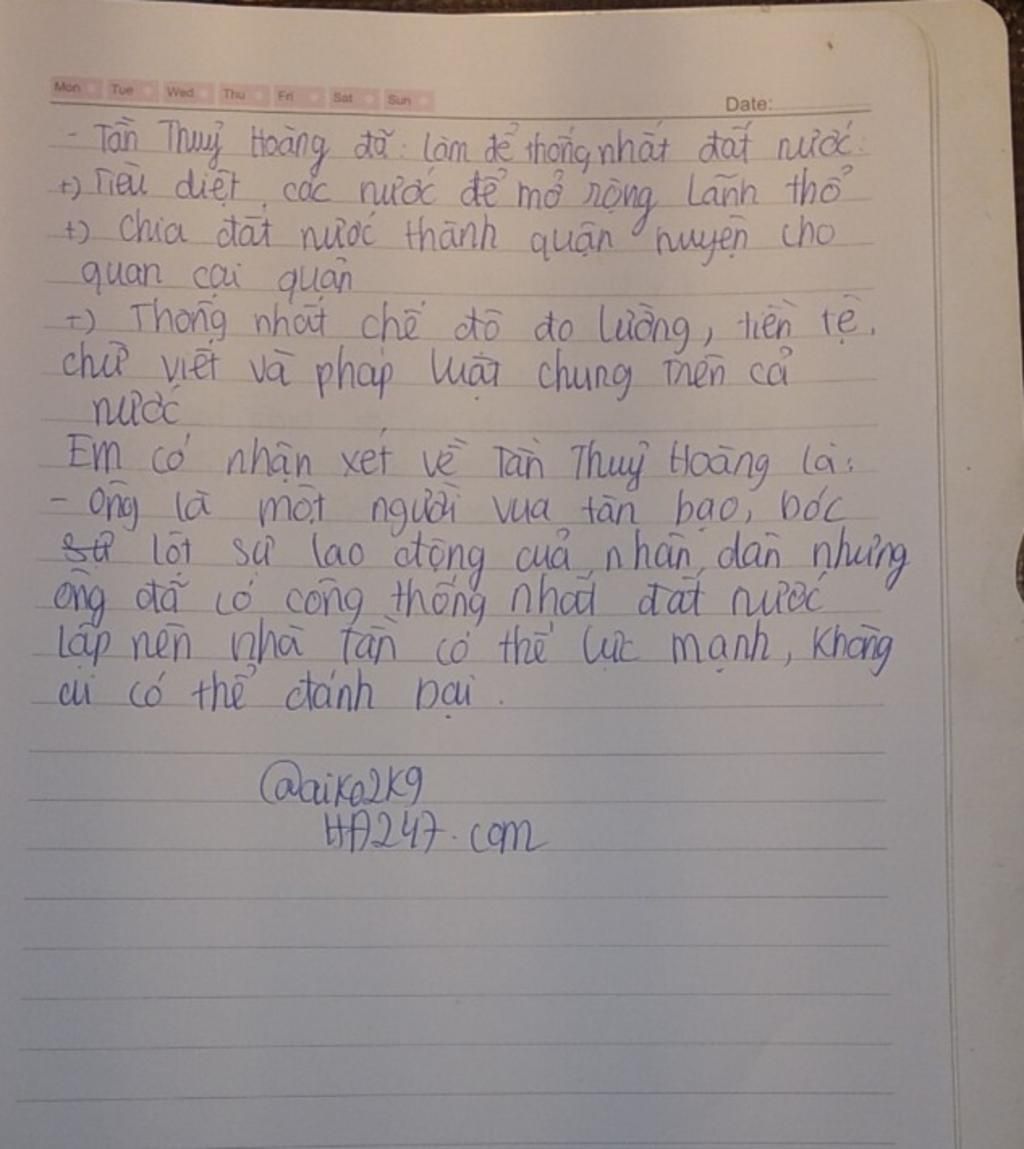 Mon Tue Wed Thu Fri Sat Sun
Date:
- Tần Thuỷ Hoàng đã làm để thống nhất đất nước:
+) Tiêu diệt các nước để mở rộng lãnh thổ
+) Chia đất nước thành quận huyện cho
quan cai quản
+) Thống nhất chế độ đo lường, tiền tệ,
chữ viết và pháp luật chung trên cả
nước
Em có nhận xét về Tần Thuỷ Hoàng là:
- Ông là một người vua tàn bạo, bóc
lột sự lao động của nhân dân nhưng
ông đã có công thống nhất đất nước
lập nên nhà Tần có thế lực mạnh, không
ai có thể đánh bại.
@aiko2k9
HD247.com